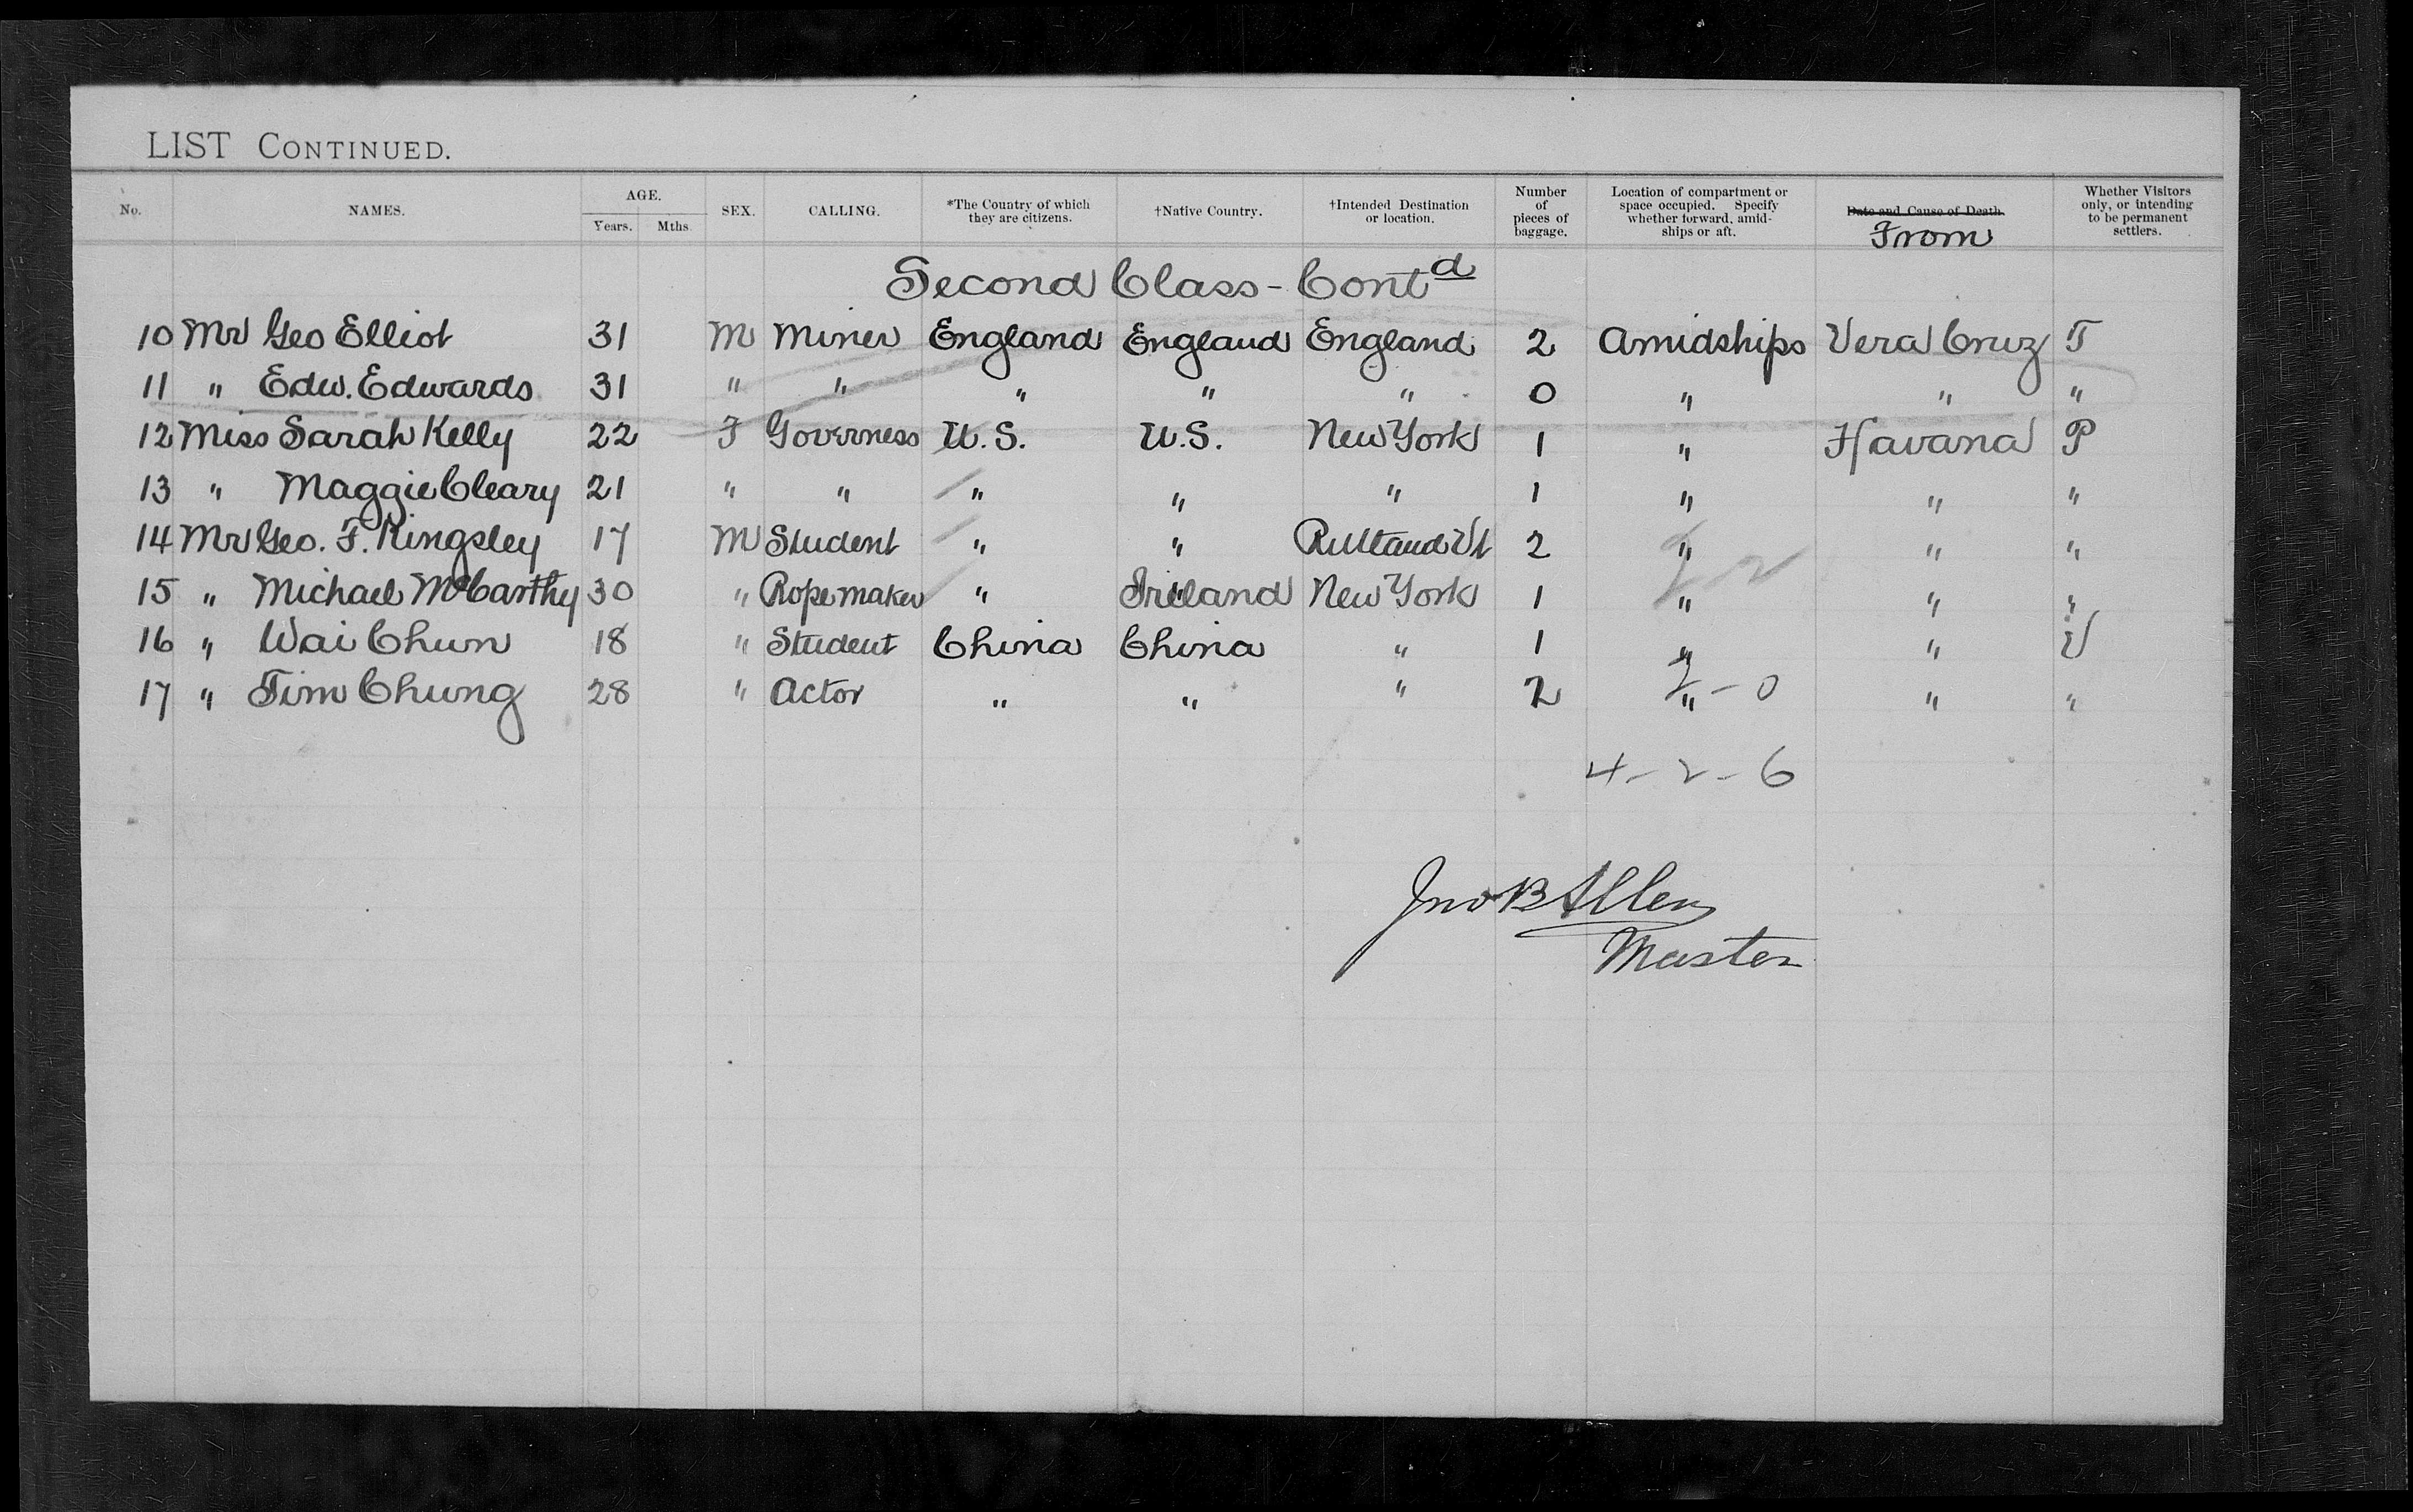 LIST CONTINUED.
No. NAMES. AGE. Years. Mths. SEX. CALLING. *The Country of which they are citizens. †Native Country. †Intended Destination or location. Number of pieces of baggage. Location of compartment or space occupied. Specify whether forward, amidships or aft. Date and Cause of Death. From Whether Visitors only, or intending to be permanent settlers.
Second Class - Contd
10 Mr Geo Elliot 31 M Miner England England England 2 Amidships Vera Cruz T
11 " Edw. Edwards 31 " " " " " 0 " " "
12 Miss Sarah Kelly 22 F Governess U.S. U.S. New York 1 " Havana P
13 " Maggie Cleary 21 " " " " " 1 " " "
14 Mr Geo. F. Kingsley 17 M Student " " Rutland Vt 2 " " "
15 " Michael McCarthy 30 " Ropemaker " Ireland New York 1 " " "
16 " Wai Chun 18 " Student China China " 1 " " V
17 " Tim Chung 28 " Actor " " " 2 " " "
2 - 0
4 - 2 - 6
Jno B Allen
Master